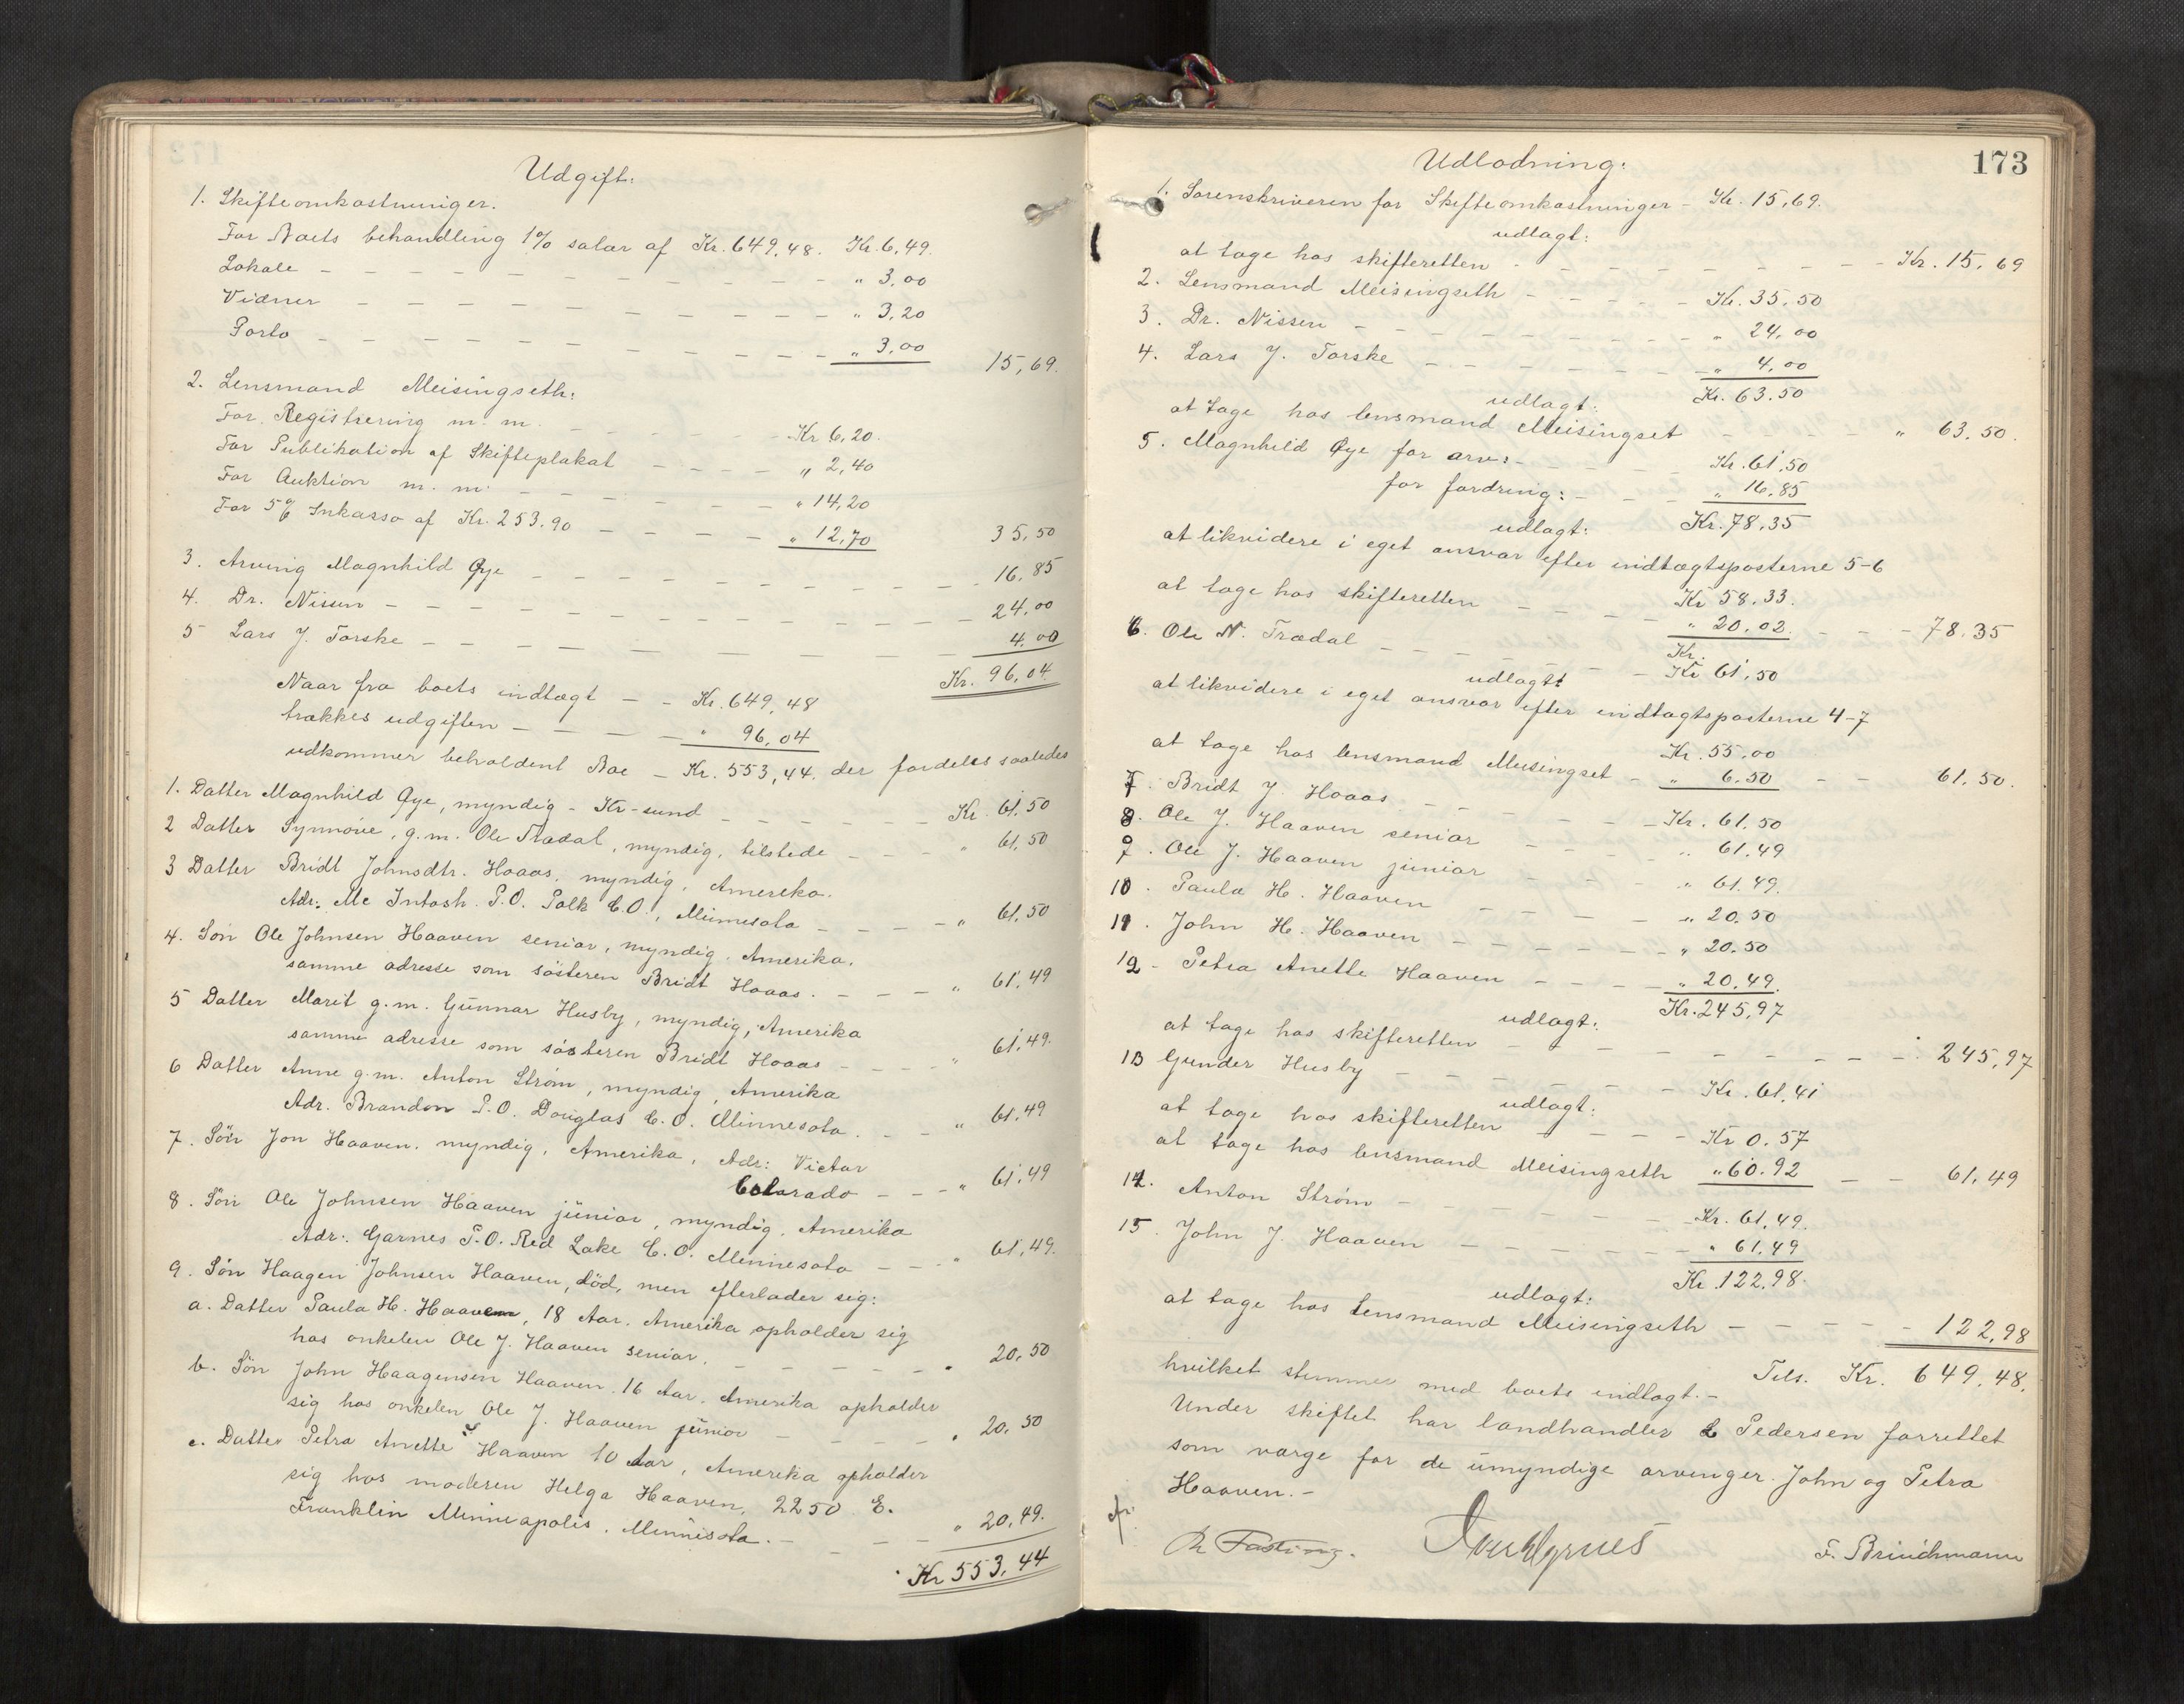 Udgift:
1. Skifteomkostninger.
For Boets behandling 1% salær af Kr. 649,48. Kr. 6,49.
Lokale - - - - „ 3,00
Vidner - - - - „ 3,20
Porto - - - - „ 3,00 15,69.
2. Lensmand Meisingseth:
For Registrering m. m. - - - Kr 6,20.
For Publikation af Skifteplakat - - - - „ 2,40
For Auktion m. m. - - - - „ 14,20
For 5% Inkasso af Kr. 253.90 - - - - „ 12,70 35,50
3. Arving Magnhild Øye - - - - 16,85
4. Dr. Nissen - - - - 24,00
5 Lars J. Torske - - - - 4.00
Kr. 96,04.
Naar fra boets indtægt - - Kr. 649,48
trækkes udgiften - - - - „ 96,04
udkommer beholdent Boe - Kr. 553,44. der fordeles saaledes
1. Datter Magnhild Øye, myndig - Kr-sund - - - - Kr. 61,50
2 Datter Synnöve, g.m. Ole Trædal, myndig, tilstede - - - „ 61,50
3 Datter Bridt Johnsdtr. Hoaas, myndig, Amerika.
Adr. Mc Intosh. P.O. Polk C.O., Minnesota - - - - „ 61,50
4. Sön Ole Johnsen Haaven senior, myndig, Amerika,
samme adresse som sösteren Bridt Hoaas. - - - „ 61,49
5 Datter Marit g.m. Gunnar Husby, myndig, Amerika
samme adresse som sösteren Bridt Hoaas - - - „ 61,49.
6 Datter Anne g.m. Anton Strøm, myndig, Amerika
Adr. Brandon P.O. Douglas C.O. Minnesota. - - „ 61,49
7. Sön Jon Haaven, myndig, Amerika, Adr: Victor
Colorado - - - „ 61,49
8. Sön Ole Johnsen Haaven junior, myndig, Amerika
Adr: Garnes P.O. Red Lake C.O. Minnesota - - - „ 61,49.
9. Sön Haagen Johnsen Haaven, död, men efterlader sig:
a. Datter Paula H. Haaven, 18 Aar. Amerika opholder sig
hos onkelen Ole J. Haaven senior. - - - - „ 20,50
b. Sön John Haagensen Haaven. 16 Aar. Amerika opholder
sig hos onkelen Ole J. Haaven junior - - - - „ 20,50
c. Datter Petra Anette Haaven 10 Aar, Amerika opholder
sig hos moderen Helga Haaven, 2250 E.
Franklin Minneapolis, Minnisota. - - - - „ 20,49.
Kr 553,44
173
Udlodning:
1. Sorenskriveren for Skifteomkostninger - Kr. 15,69.
udlagt:
at tage hos skifteretten - - - - Kr. 15,69
2. Lensmand Meisingseth - - - - Kr. 35,50
3. Dr. Nissen - - - - „ 24,00
4. Lars J. Torske - - - - „ 4,00
Kr. 63.50
udlagt:
at tage hos lensmand Meisingset - - - - „ 63,50.
5. Magnhild Øye for arv: - - - - Kr. 61,50
for fordring: - - - „ 16,85
Kr. 78,35
udlagt:
at likvidere i eget ansvar efter indtægtsposterne 5-6
Kr 58.33.
at tage hos skifteretten - - - - „ 20,02. - - - 78,35
Kr.
6. Ole N. Trædal - - - - Kr 61,50
udlagt:
at likvidere i eget ansvar efter indtægtsposterne 4-7
Kr. 55,00
at tage hos lensmand Meisingset - „ 6.50 - - 61,50.
7. Bridt J. Hoaas - - - - Kr. 61,50
8. Ole J. Haaven senior - - - - „ 61,49
9. Ole J. Haaven junior - - - - „ 61.49.
10. Paula H. Haaven - - - - „ 20.50
11. John H. Haaven - - - - „ 20.50
12 - Petra Anette Haaven - - - - „ 20,49.
Kr. 245,97
udlagt:
at tage hos skifteretten - - - - „ 245,97
13 Gunder Husby - - - - Kr. 61,41
udlagt:
at tage hos skifteretten - - - - Kr 0.57
at tage hos lensmand Meisingseth „ 60.92 - - 61,49
14. Anton Strøm - - - - Kr. 61,49.
15. John J. Haaven - - - - „ 61,49
Kr. 122,98.
udlagt:
at tage hos Lensmand Meisingseth - - - - 122,98
Tils. Kr. 649,48.
hvilket stemmer med boets indtægt. -
Under skiftet har landhandler L Pedersen forrettet
som værge for de umyndige arvinger John og Petra
Haaven. -
F. Brinchmann